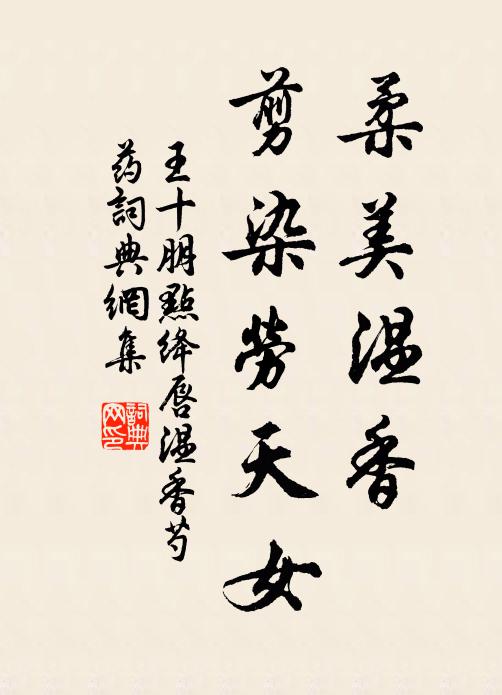 柔美温香
剪染勞天女
王十朋點绛唇温香芍
药詞典網集
詞典
网印